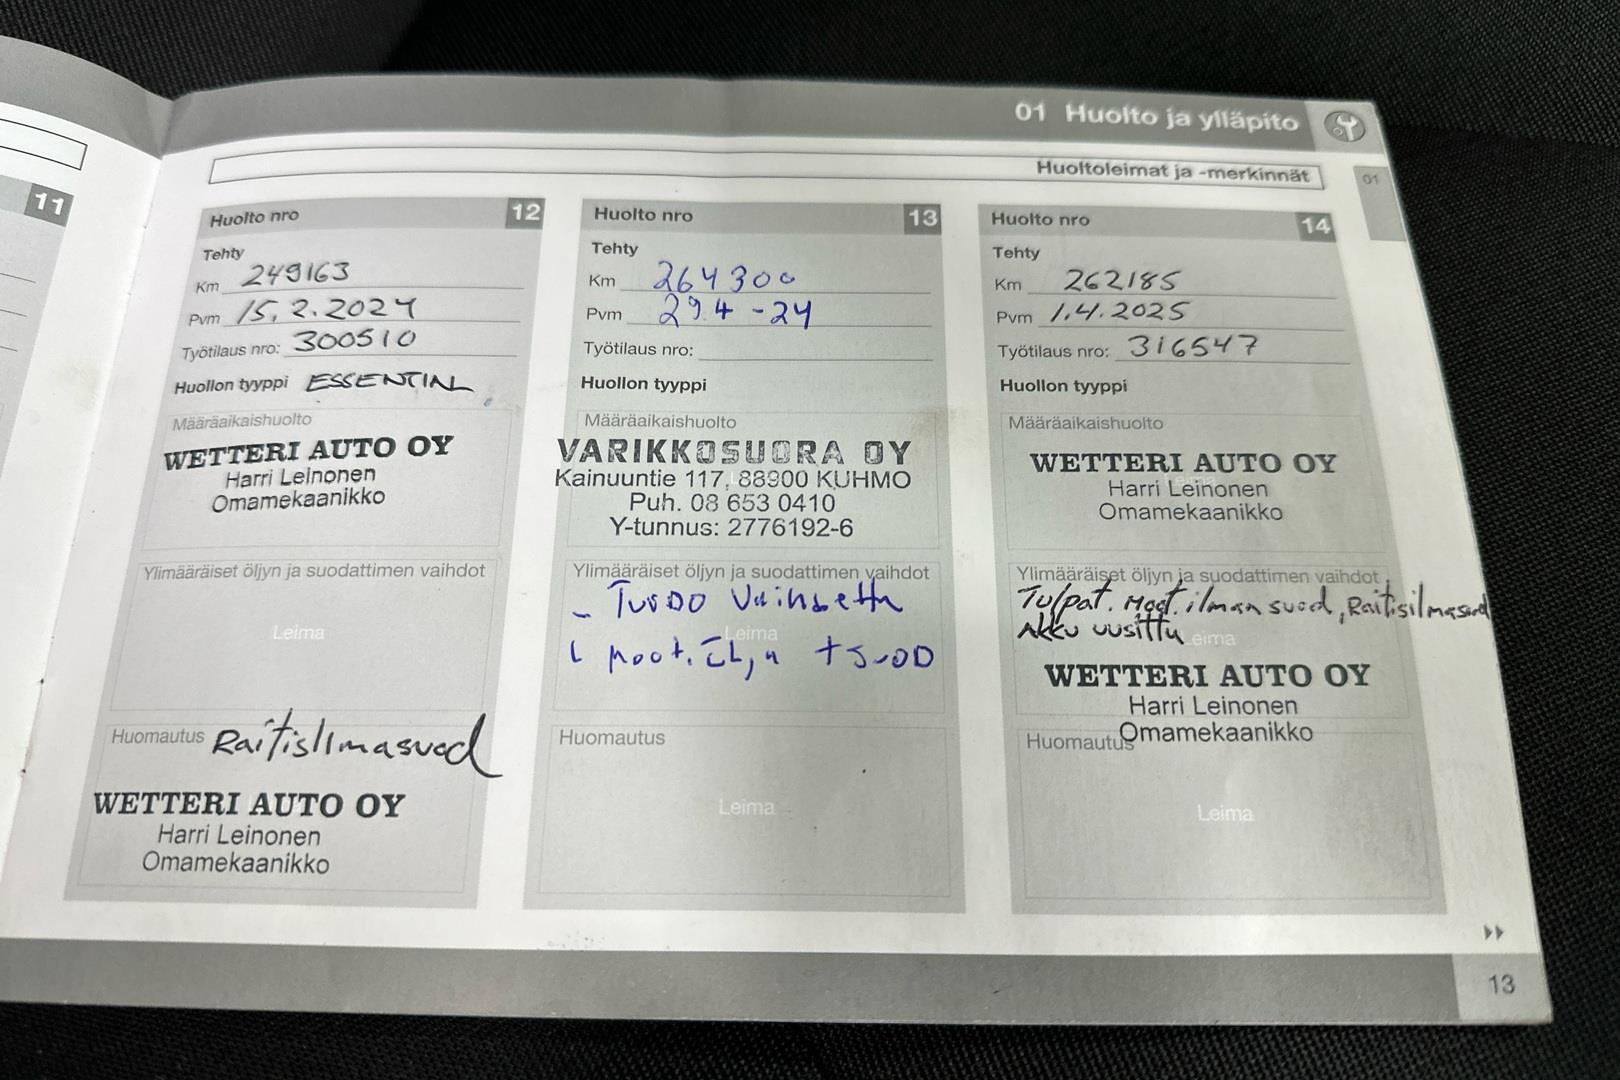 01 Huolto ja ylläpito
Huoltoleimat ja -merkinnät
01
11
Huolto nro 12
Tehty
Km 249163
Pvm 15.2.2024
Työtilaus nro: 300510
Huollon tyyppi ESSENTIAL
Määräaikaishuolto
WETTERI AUTO OY
Harri Leinonen
Omamekaanikko
Ylimääräiset öljyn ja suodattimen vaihdot
Leima
Huomautus Raitisilmasuod
WETTERI AUTO OY
Harri Leinonen
Omamekaanikko
Huolto nro 13
Tehty
Km 264300
Pvm 29.4-24
Työtilaus nro:
Huollon tyyppi
Määräaikaishuolto
VARIKKOSUORA OY
Kainuuntie 117, 88900 KUHMO
Puh. 08 653 0410
Y-tunnus: 2776192-6
Ylimääräiset öljyn ja suodattimen vaihdot
Leima
moot. + suod
Huomautus
Leima
Huolto nro 14
Tehty
Km 262185
Pvm 1.4.2025
Työtilaus nro: 316547
Huollon tyyppi
Määräaikaishuolto
WETTERI AUTO OY
Harri Leinonen
Omamekaanikko
Ylimääräiset öljyn ja suodattimen vaihdot
Tulpat. moot. ilman suod, Raitisilmasuod
Akku uusittu
Leima
WETTERI AUTO OY
Harri Leinonen
Omamekaanikko
Huomautus
Leima
13